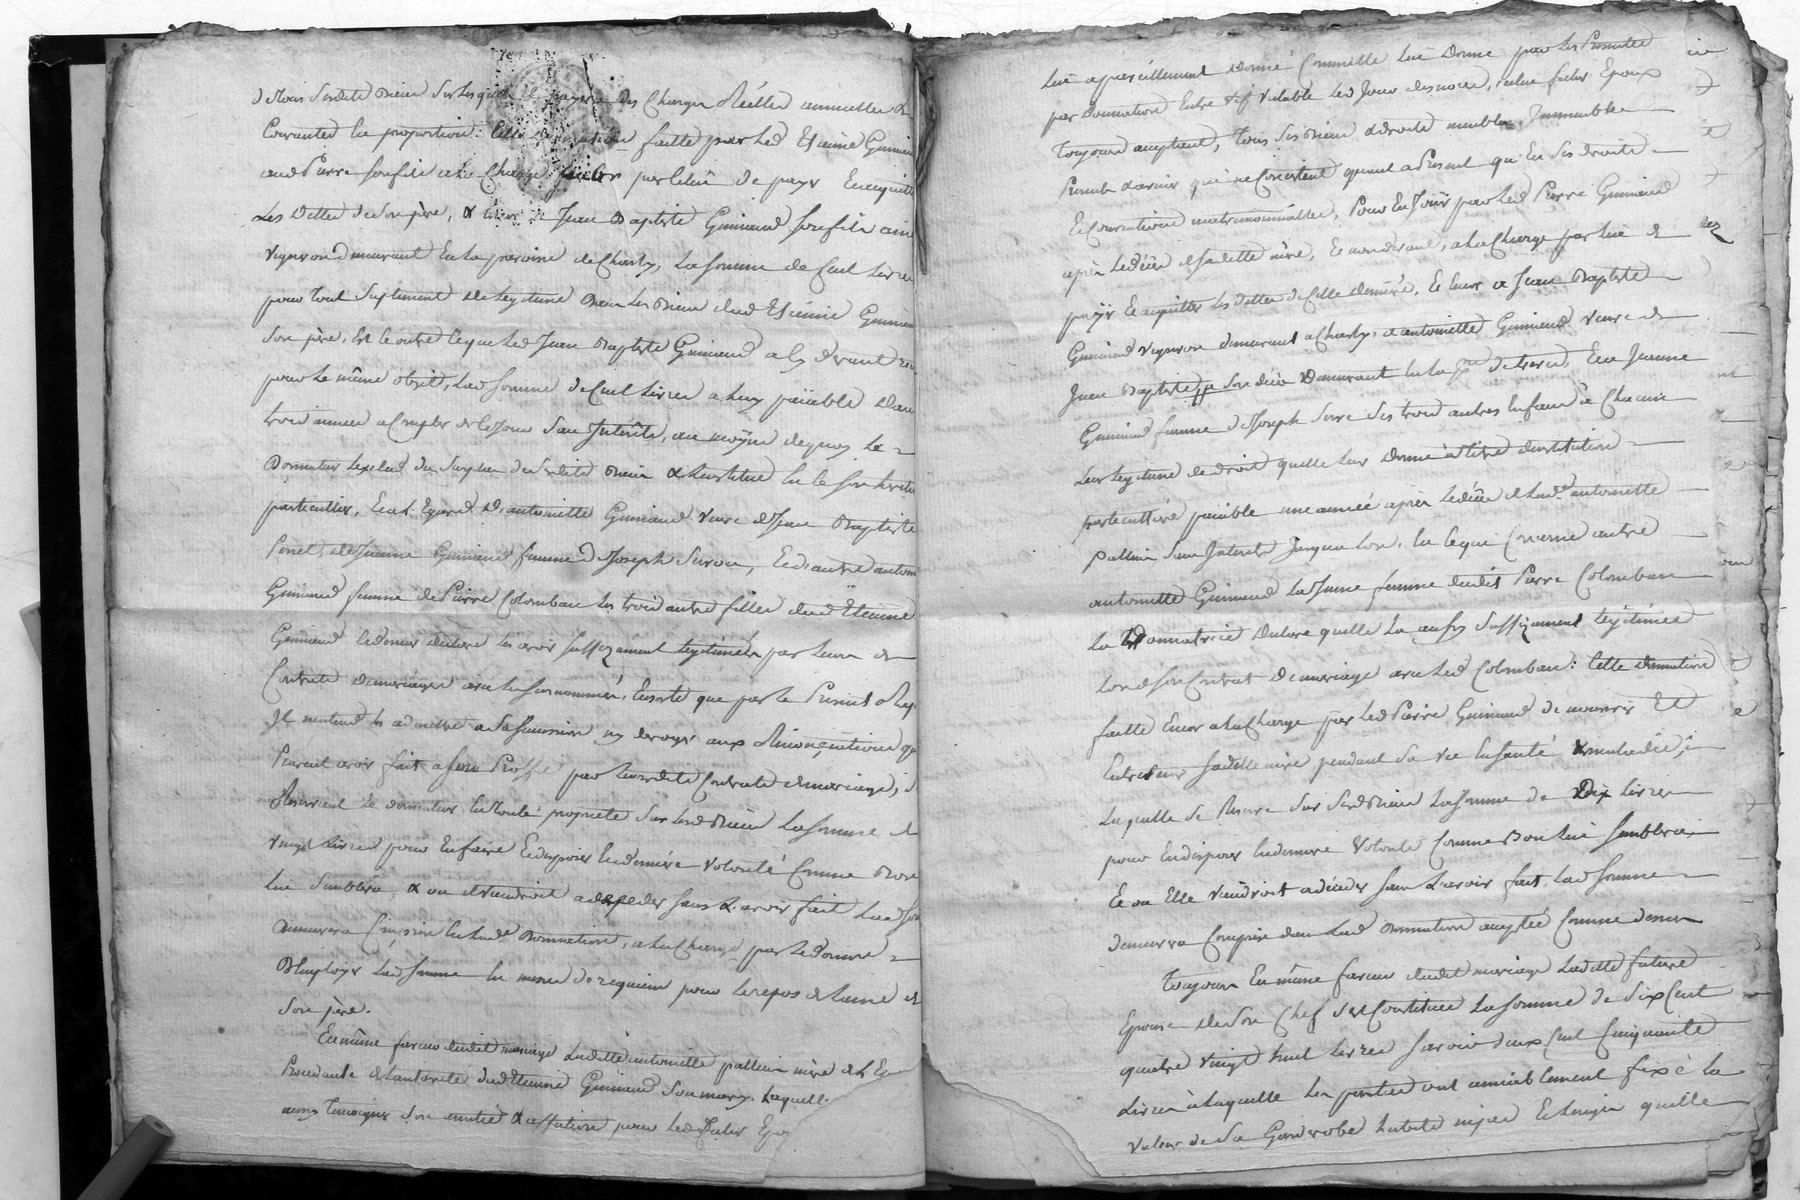 de tous sesdits biens sur lesquels il payera les charges réelles annuelles &
Courantes la proportion: cette donnation faitte par led Etienne Guinand
aud Pierre son fils a la charge par celui de payer Et acquitter
les dettes de son père, & à Jean Baptiste Guinand son fils ainé
vigneron demeurant En la paroisse de Charly, la somme de Cent livres
pour tout suplement de legitime dans les biens dud Etienne Guinand
son père, Et ce outre ce que led Jean Baptiste Guinand a cy devant reçu
pour le même objet, lad somme de Cent livres a luy païable dans
trois années a compter de ce jour sans Interêts, au moyen dequoy le
Donnateur l'exclud du surplus de sesdits biens & l'institue en ce son heritier
particulier, Et a l'Egard d'antoinette Guinand veuve de Jean Baptiste
Perret, de Jeanne Guinand femme de Joseph Serve, Et d'autre antoinette
Guinand femme de Pierre Colomban les trois autres filles dud Etienne
Guinand ce dernier declare les avoir suffizament legitimées par leurs
Contrats de mariages avec les surnommés, Ensorte que par le Present
Il n'entend les admettre a sa succession ny deroger aux Rénonciations qu
Peuvent avoir fait a son Proffit par leursdits Contrats de mariage, se
Reservant le donnateur En toute proprieté sur sesd biens la somme de
vingt livres pour En faire Et disposer En derniére volonté Comme Bon
lui semblera, & ou il viendroit a deceder sans l'avoir fait lad som
demeurera Comprise En lade Donnation, a la Charge par le donné
d'Employer lad somme En messes de requiem pour le repos de l'ame de
son père.
En même faveur dudit mariage ladite antoinette pallin mère de l'E
Procedante de l'autorité dud Etienne Guinand son mary, laquelle
aussy temoigner son amitié & affection pour led futur Epo
lui a pareillement donné Comme elle lui donne par les Presentes
par Donnation Entre vifs valable led jour des noces, celui futur Epoux
toujours acceptant, tous ses biens & droits meubles Immeubles
Presents & avenir qui ne Consistent quant a Present qu'En ses droits
Et Conventions matrimonialles, Pour En Jouir par led Pierre Guinand
après le déces de sadite mère, Et non devant, a la Charge par lui de
payer Et acquitter les dettes de cette derniére, Et a Jean Baptiste
Guinand vigneron demeurant a Charly, a antoinette Guinand veuve de
Jean Baptiste demeurant En la psse de Et a Jeanne
Guinand femme de Joseph Serve ses trois autres Enfants à Chacun
leur legitime de droit quelle leur donne à titre dinstitution
particulière païable une année après le déces de lade antoinette
Pallin sans Interêts jusqu'a lors, En ce qui Concerne autre
antoinette Guinand la Jeune femme dudit Pierre Colomban
la Donnatrice declare quelle la aussy suffizament legitimée
lors de son Contrat de mariage avec led Colomban: Cette donnation
faitte Encor a la Charge par led Pierre Guinand de nourrir Et
Entretenir sadite mère pendant sa vie En santé & maladie;
laquelle se Reserve sur sesd Biens la somme de Dix livres
pour En disposer En derniere Volonté Comme Bon lui semblera
Et ou Elle viendroit a déceder sans l'avoir fait, lad somme
demeurera Comprise dans lad Donnation acceptée Comme dessus
Toujours En même faveur dudit mariage ladite future
Epouse de son Chef s'est Constituée la somme de Six Cent
quatre vingt huit livres savoir deux Cent Cinquante
livres à laquelle les parties ont amiablement fixé la
valeur de sa Garderobe Et linges quelle